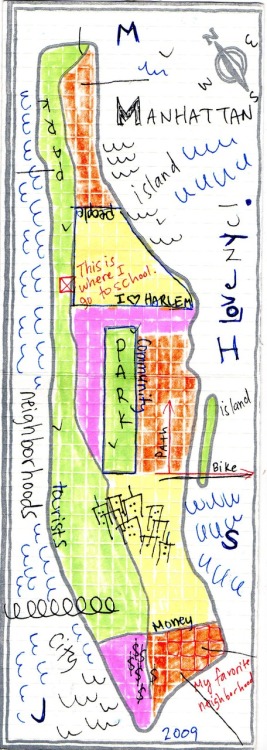 M
MANHATTAN
island
N
E
S
W
I LOVE NYC!
people
This is
where I
go to school.
I ♡ HARLEM
PARK
Community
PATH
island
Bike
neighborhoods
tourists
S
Money
City
My favorite
neighborhood
2009